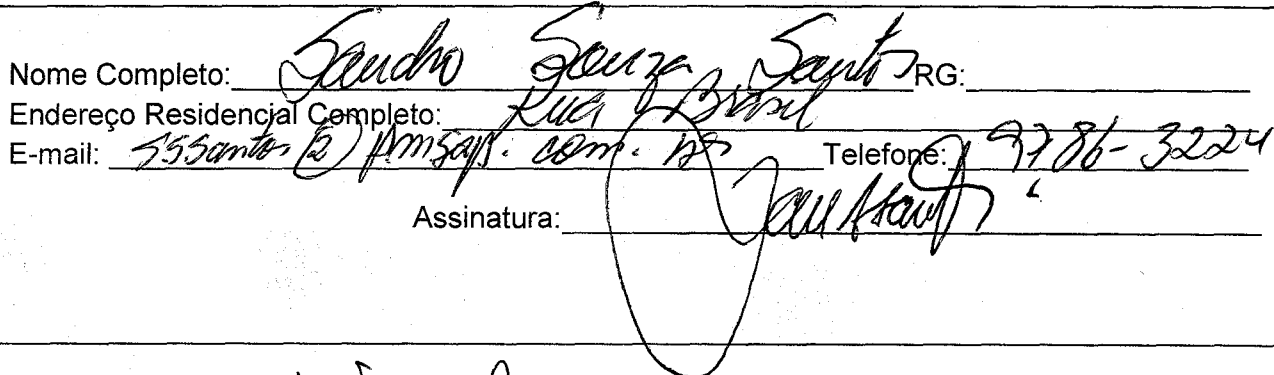 Nome Completo: Sandro Souza Santos RG:
Endereço Residencial Completo: Rua Brasil
E-mail: SSSantos@ . com. br Telefone: 9786-3224
Assinatura: